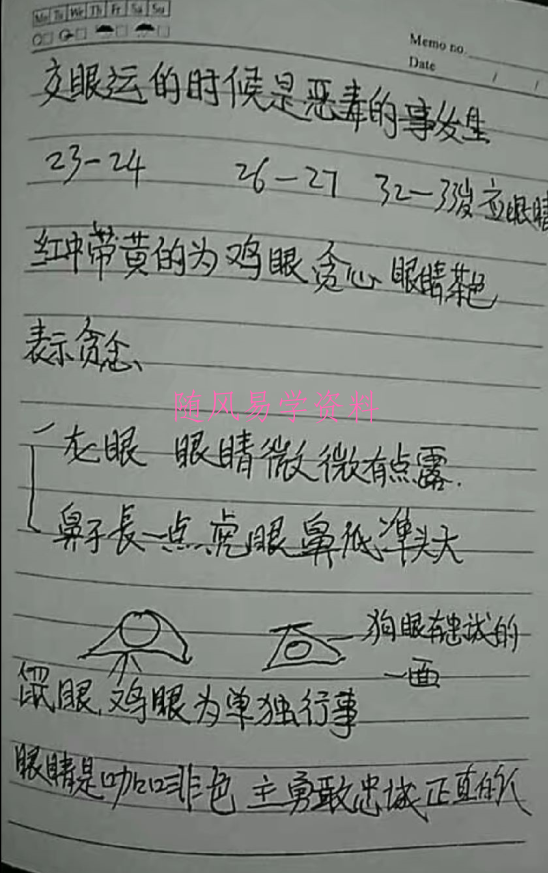 Mo Tu We Th Fr Sa Su
Memo no.
Date / /
交眼运的时候是恶毒的事发生
23-24 26-27 32-33岁应眼睛
红中带黄的为鸡眼贪心眼睛茶色
表示贪念、
随风易学资料
龙眼 眼睛微微有点露.
鼻子長一点虎眼鼻低準头大
狗眼有忠诚的
一面
鼠眼,鸡眼为单独行事
眼睛是咖啡色 主勇敢忠诚正直的人